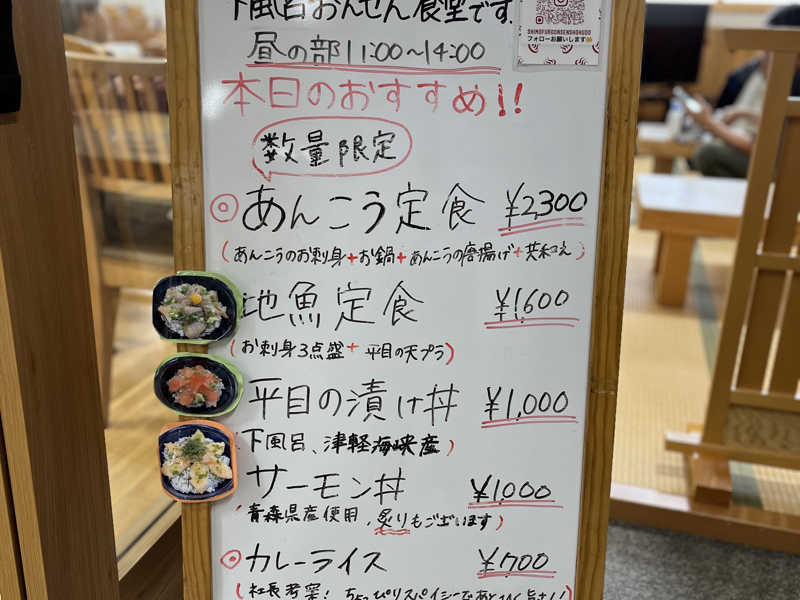 下風呂おんせん食堂です。
SHIMOFUROONSENSHOKUDO
フォローお願いします
昼の部11:00～14:00
本日のおすすめ!!
数量限定
◎あんこう定食 ¥2,300
(あんこうのお刺身+お鍋+あんこうの唐揚げ+共和え)
地魚定食 ¥1,600
(お刺身3点盛+平目の天プラ)
平目の漬け丼 ¥1,000
下風呂、津軽海峡産)
サーモン丼 ¥1,000
青森県産使用、炙りもございます)
◎カレーライス ¥700
(社長考案!